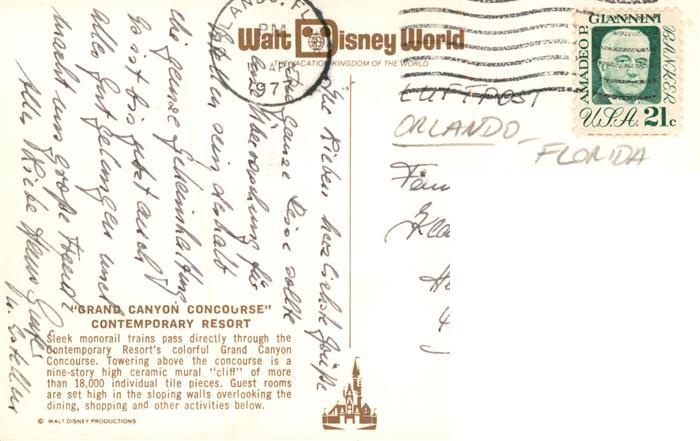 ORLANDO, FL
PM
APR
1977
Walt Disney World
THE VACATION KINGDOM OF THE WORLD
AMADEO P. GIANNINI
BANKER
U.S.A. 21c
LUFTPOST
ORLANDO
FLORIDA
Fam
Kla
Ihr Lieben herzlichste Grüße
ganze Reise sollte
eine Überraschung für
sein deshalb
die ganze Geheimhaltung
Es ist bis jetzt auch
alles gut gelungen und
macht uns große Freude
Alles Liebe Hans
"GRAND CANYON CONCOURSE"
CONTEMPORARY RESORT
Sleek monorail trains pass directly through the
Contemporary Resort's colorful Grand Canyon
Concourse. Towering above the concourse is a
nine-story high ceramic mural "cliff" of more
than 18,000 individual tile pieces. Guest rooms
are set high in the sloping walls overlooking the
dining, shopping and other activities below.
© WALT DISNEY PRODUCTIONS